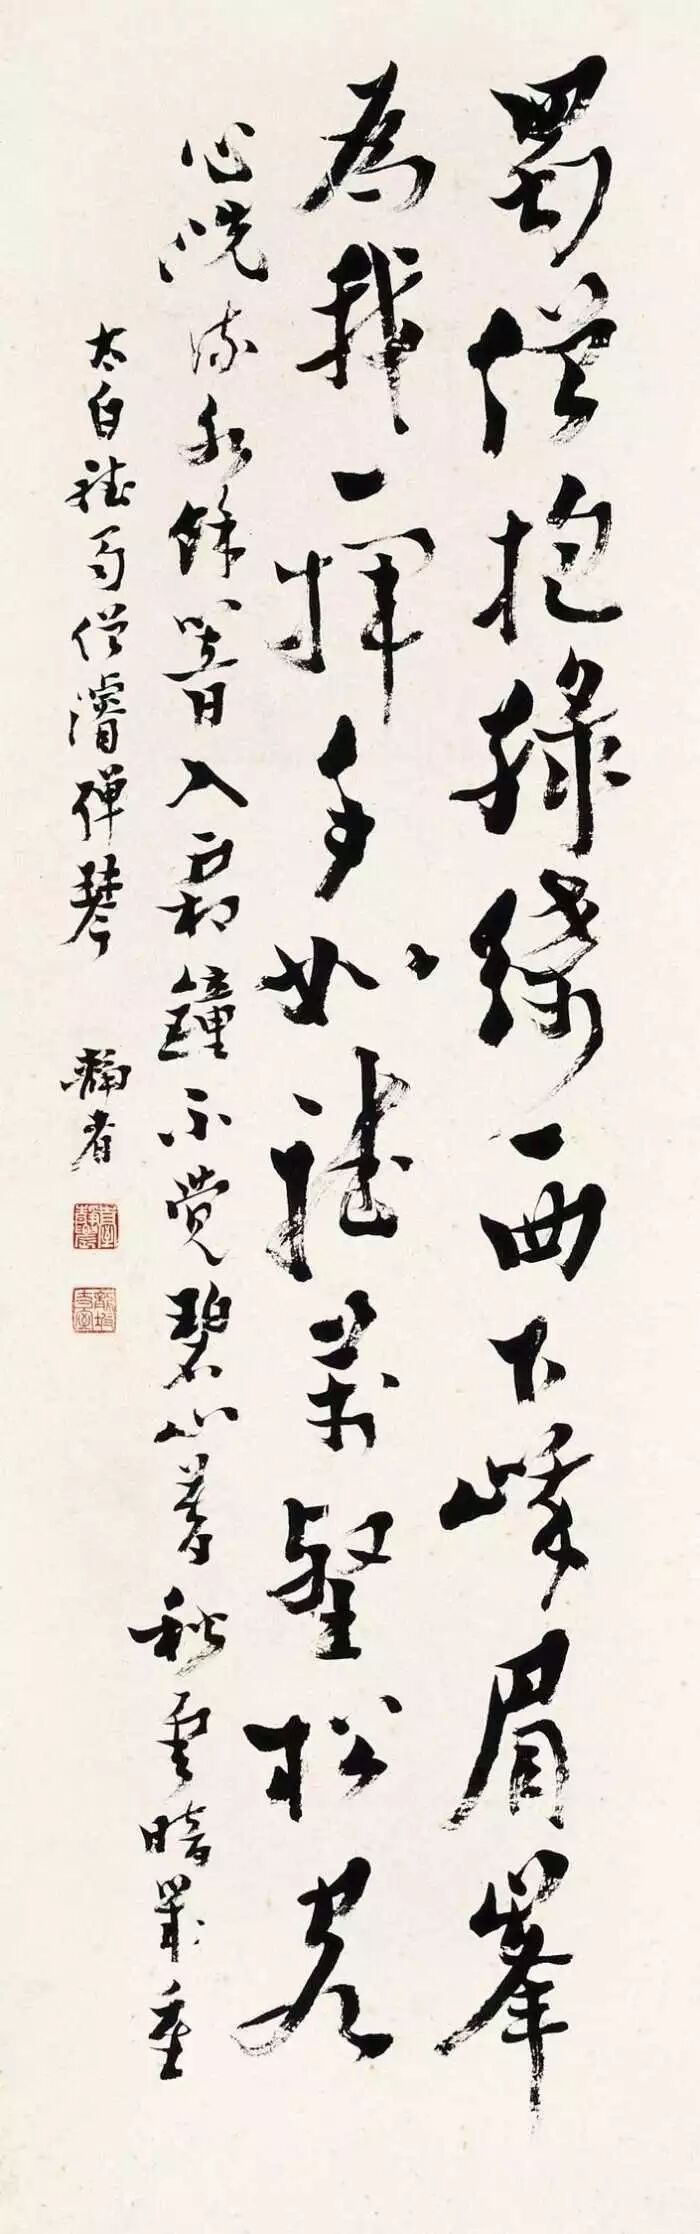 蜀僧抱綠綺西下峨眉峯
為我一揮手如聽萬壑松客
心洗流水餘響入霜鐘不覺碧山暮秋雲暗幾重
太白聽蜀僧濬彈琴 靜者